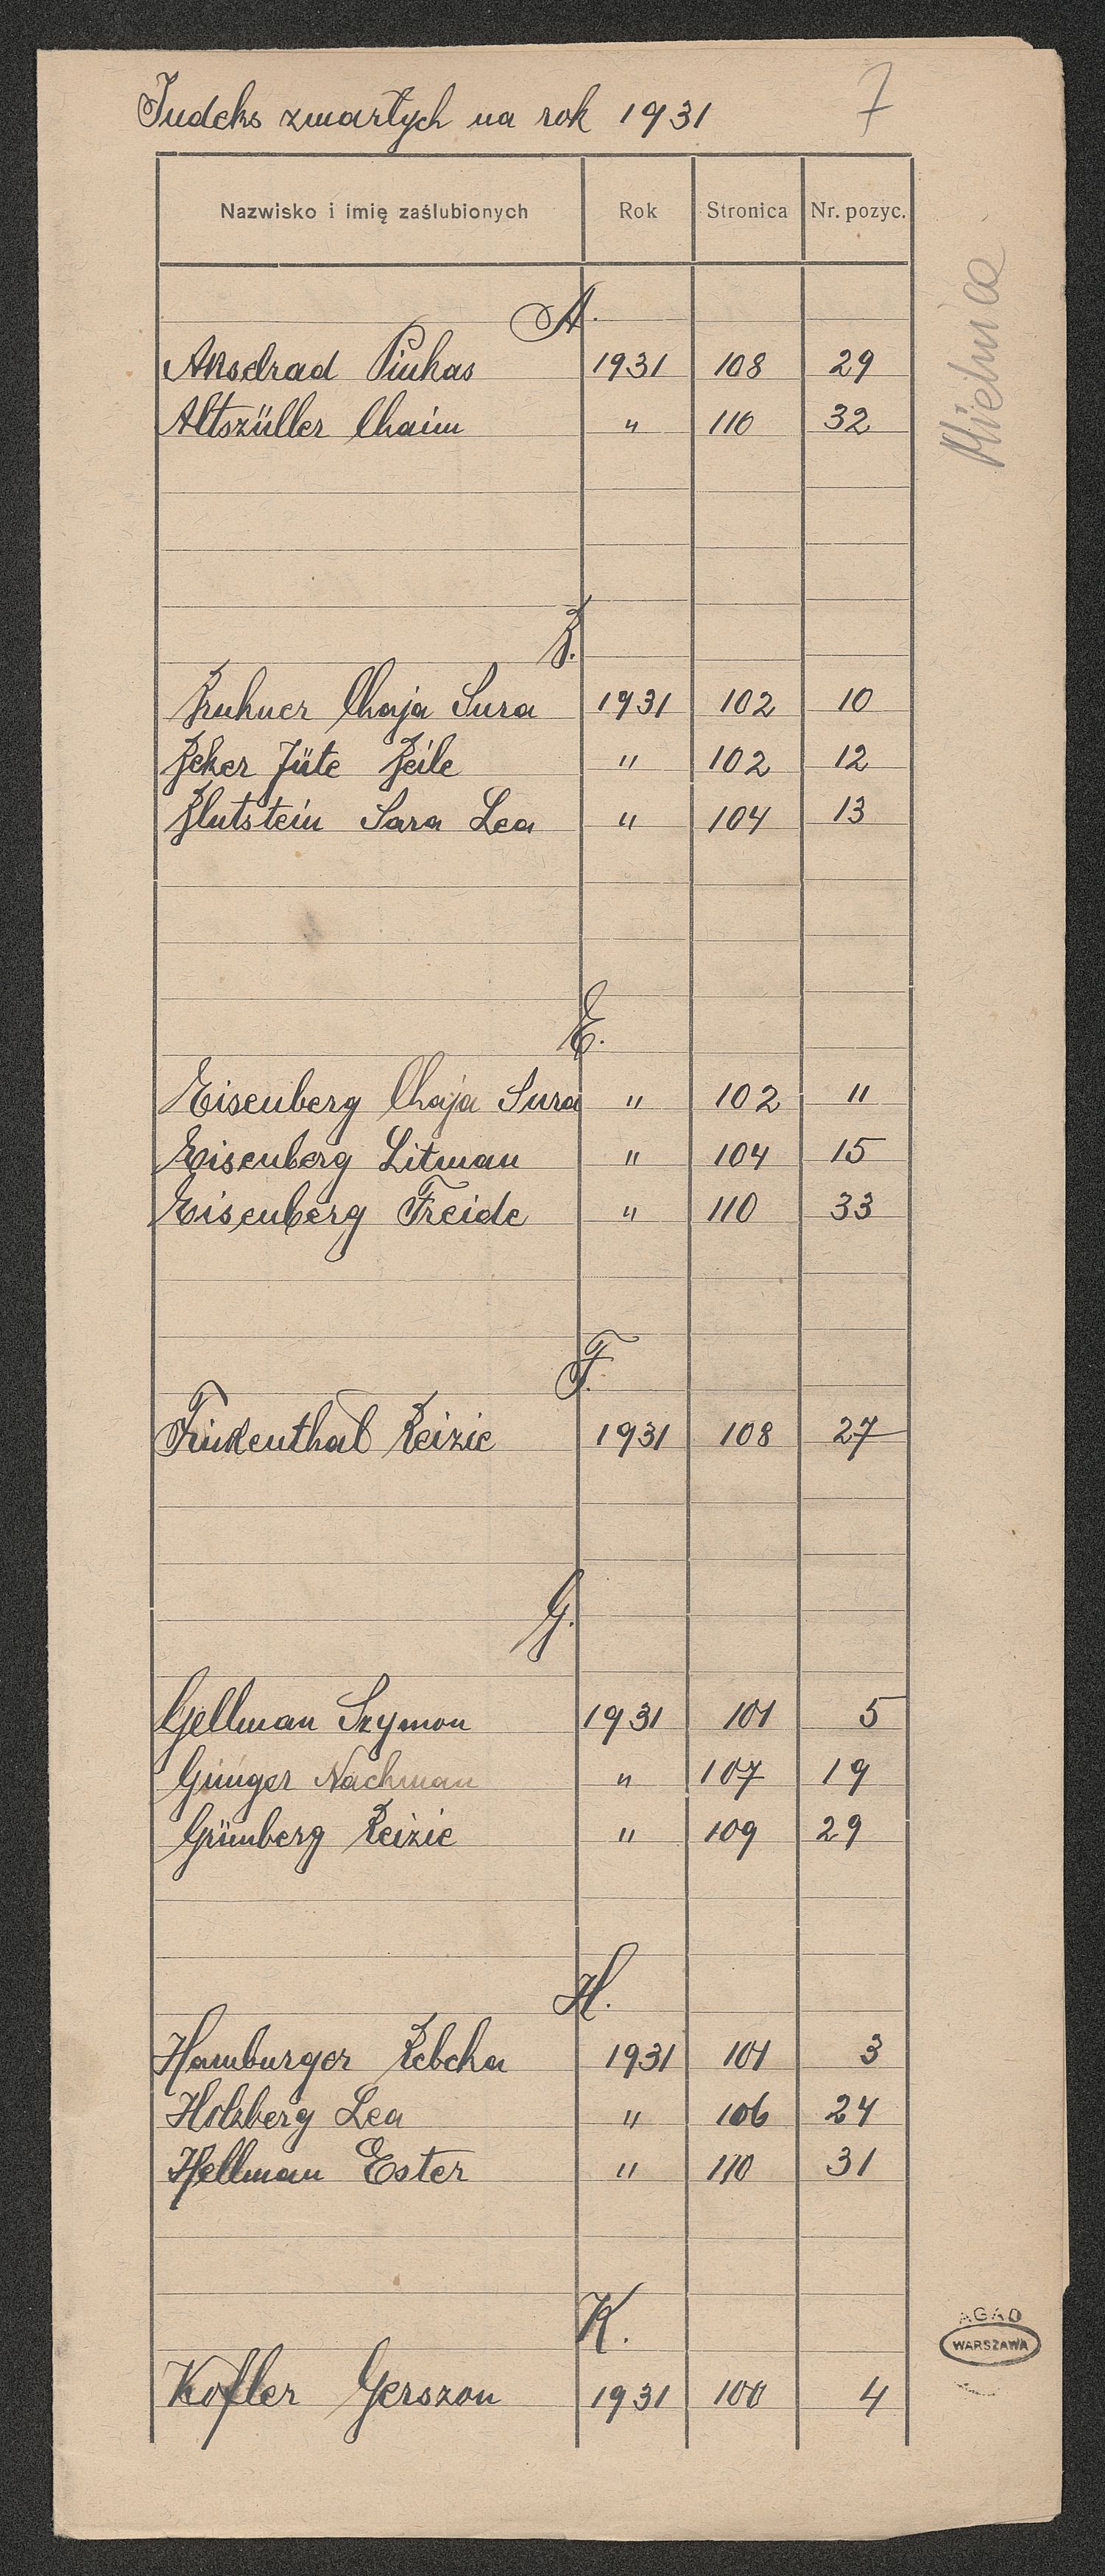 Indeks zmarłych na rok 1931
7
Nazwisko i imię zaślubionych Rok Stronica Nr. pozyc.
Mielnica
A.
Aksdrad Pinkas 1931 108 29
Altszüller Chaim " 110 32
B.
Bruhner Chaja Sura 1931 102 10
Beker Jüte Beile " 102 12
Blutstein Sara Lea " 104 13
E.
Eisenberg Chaja Sura " 102 11
Eisenberg Litman " 104 15
Eisenberg Freide " 110 33
F.
Finkenthal Reizie 1931 108 27
G.
Gellman Szymon 1931 101 5
Ginger Nachman " 107 19
Grünberg Reizie " 109 29
H.
Hamburger Rebeka 1931 101 3
Holzberg Lea " 106 24
Hellman Ester " 110 31
K.
AGAD
WARSZAWA
Kofler Gerszon 1931 100 4